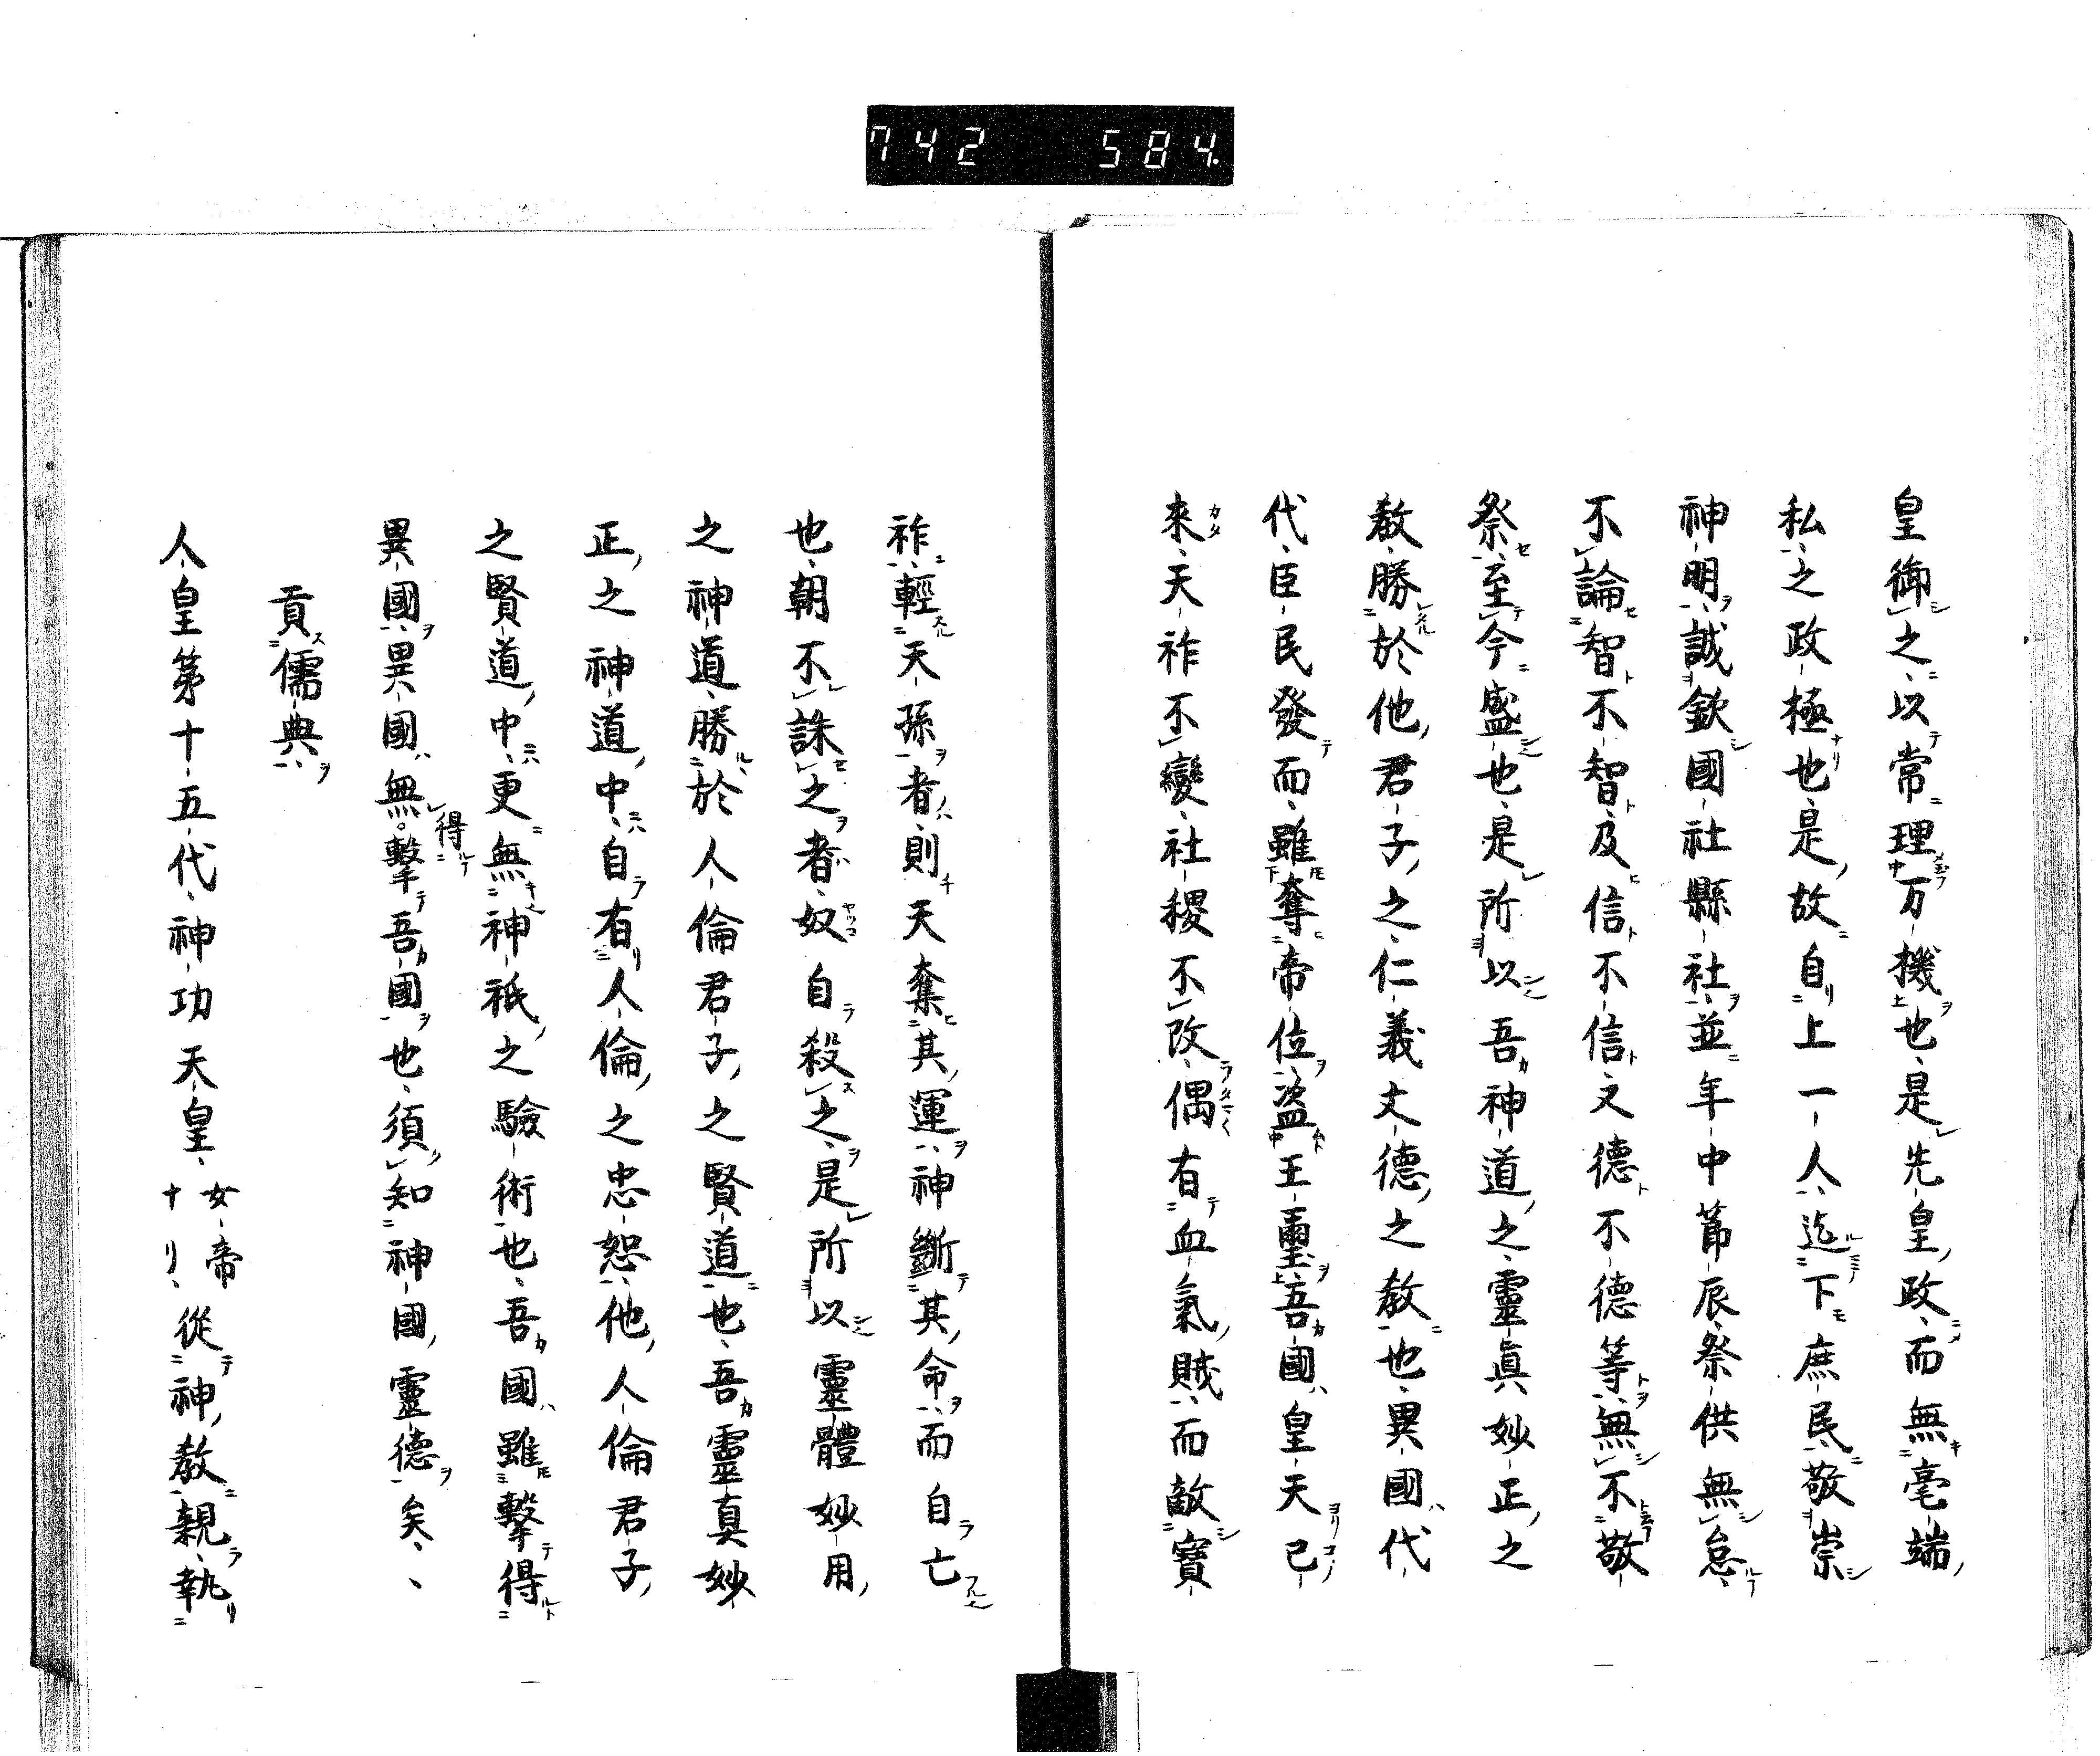 742 584
皇御之以常理万機也是先皇政而無毫端
私之政極也是故自上一人迄下庶民敬崇
神明誠欽國社縣社並年中節辰祭供無怠
不論智不智及信不信文德不德等無不敬
祭至今盛也是所以吾神道之靈真妙正之
教勝於他君子之仁義丈德之教也異國代
代臣民發而雖奪帝位盜王璽吾國皇天已
來天祚不變社稷不改偶有血氣賊而敵寶
祚輕天孫者則天奪其運神斷其命而自亡
也朝不誅之者奴自殺之是所以靈體妙用
之神道勝於人倫君子之賢道也吾靈真妙
正之神道中自有人倫之忠恕他人倫君子
之賢道中更無神祇之驗術也吾國雖擊得
異國異國無得擊吾國也須知神國靈德矣
貢儒典
人皇第十五代神功天皇女帝ナリ從神教親執